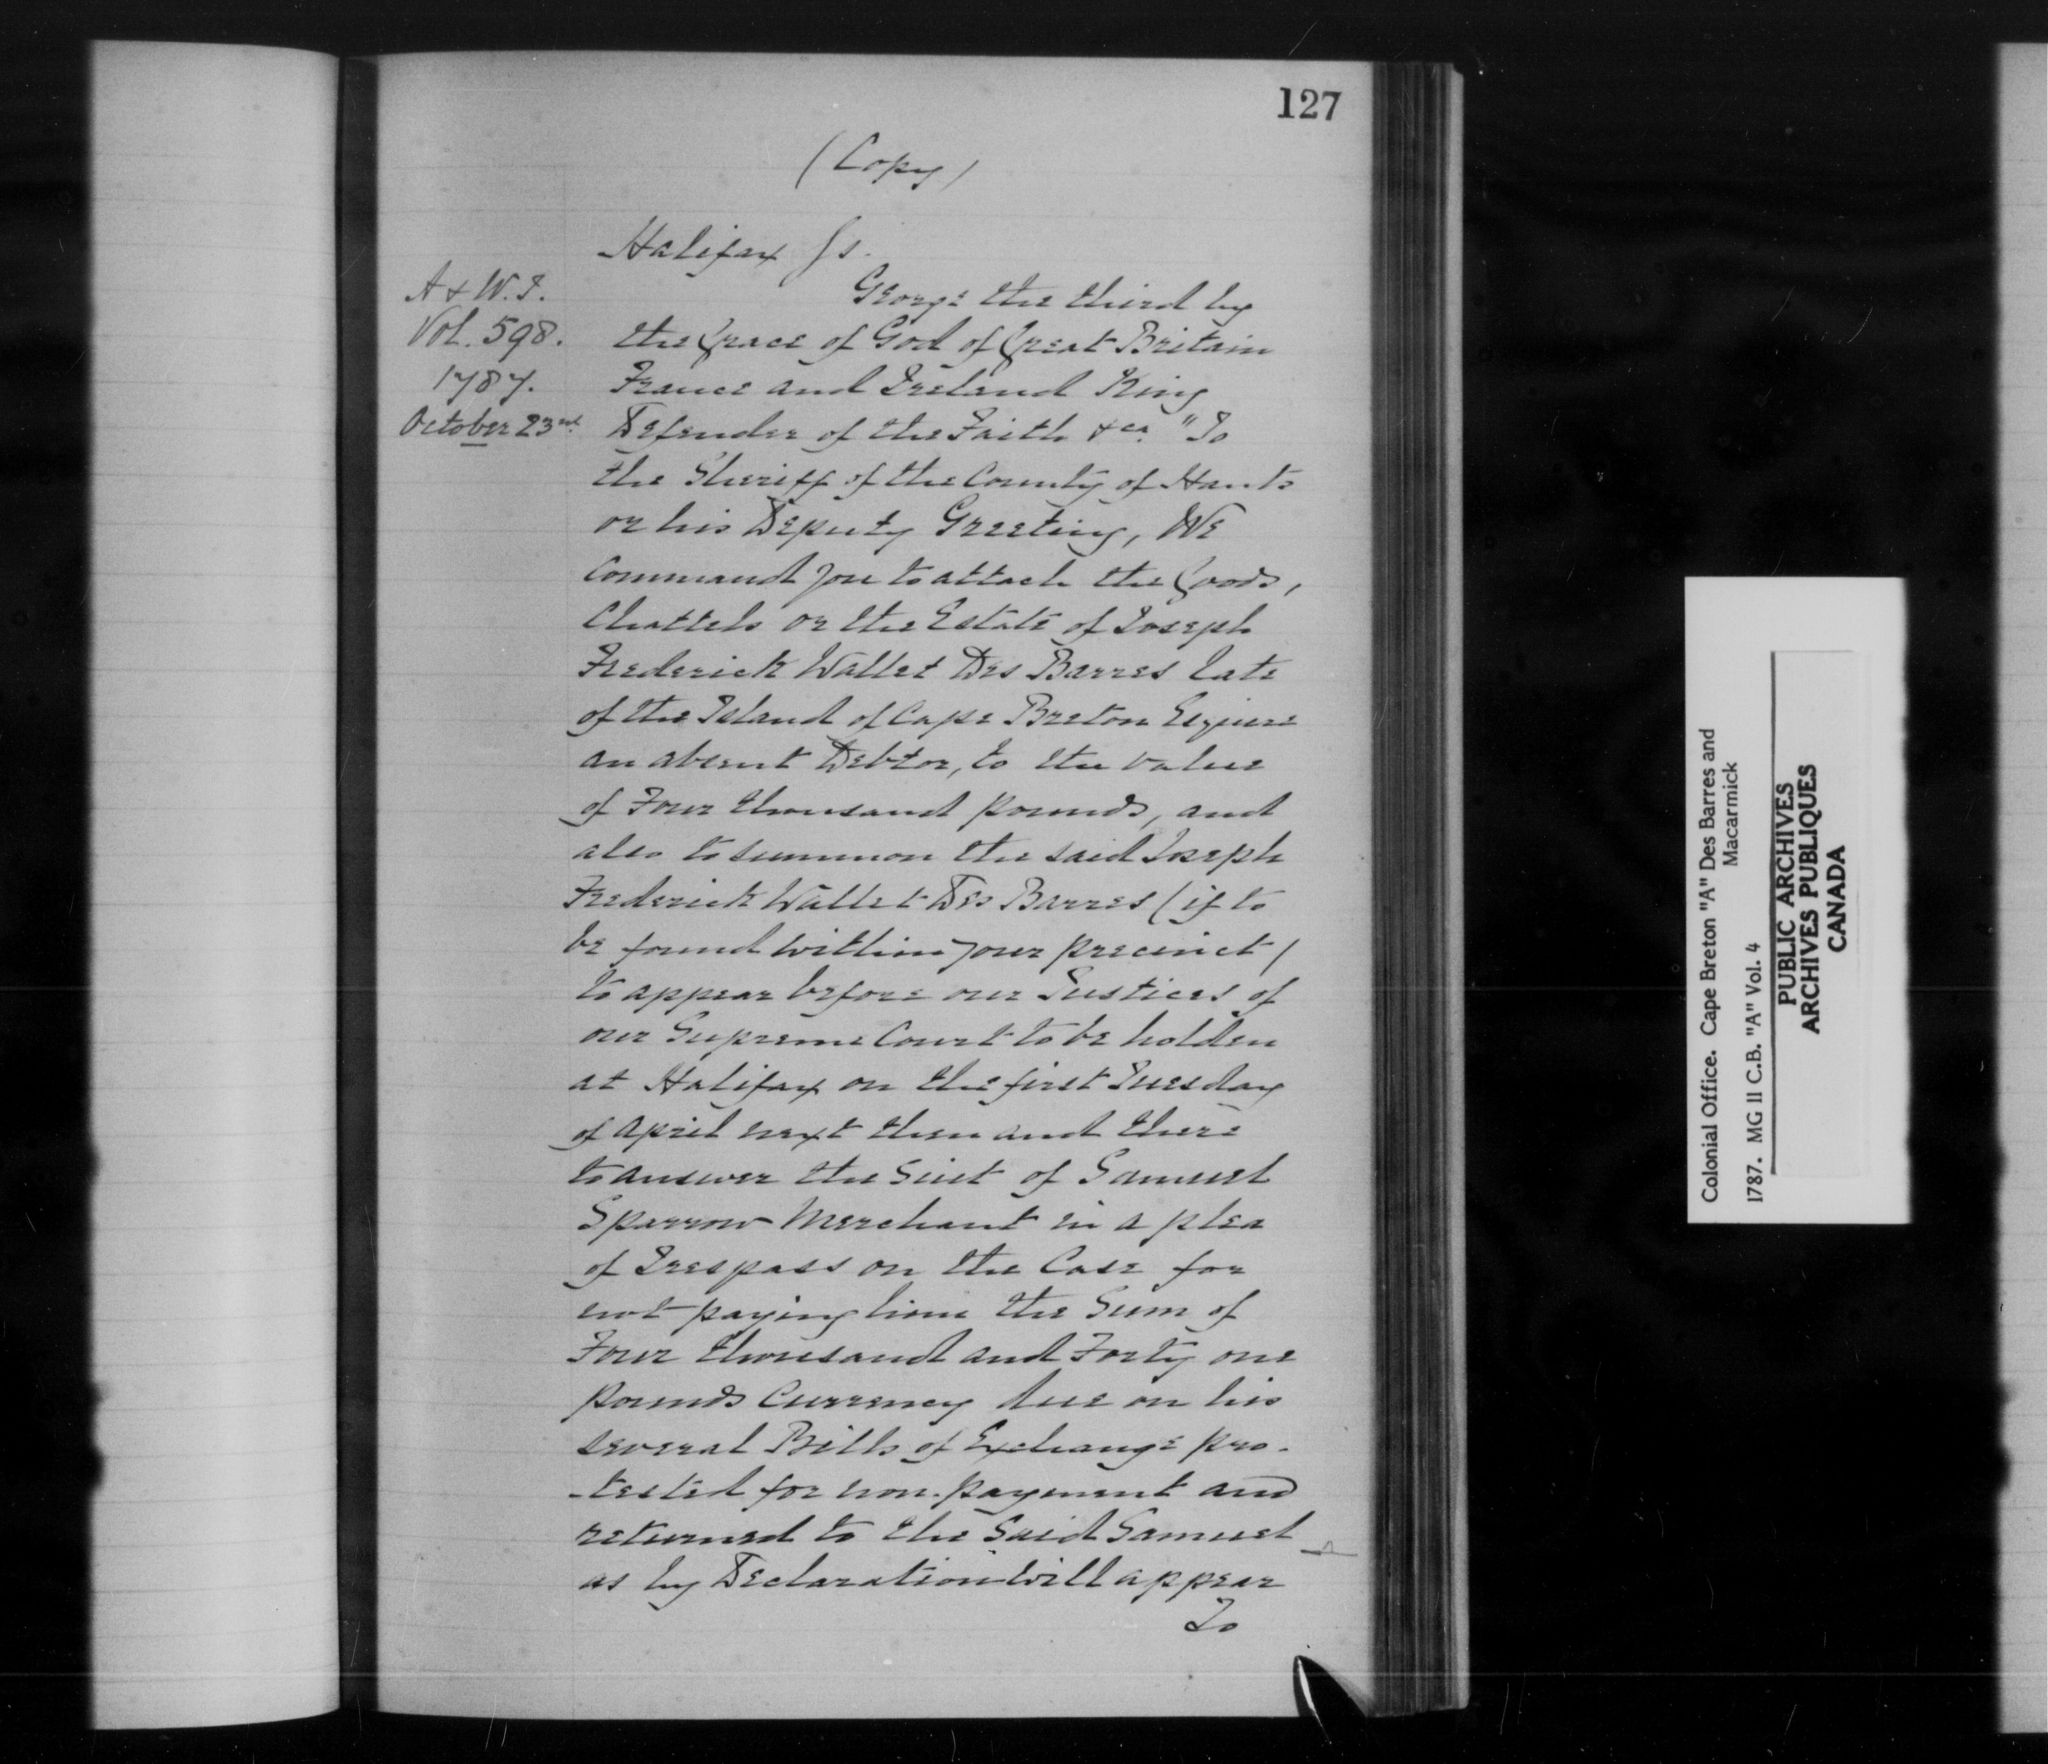 127
(Copy)
Halifax Js.
A & W.I.
Vol. 598.
1787.
October 23rd
George the third by
the Grace of God of Great Britain
France and Ireland King
Defender of the Faith &ca. "To
the Sheriff of the County of Hants
or his Deputy Greeting, We
Command you to attach the Goods,
Chattels or the Estate of Joseph
Frederick Wallet Des Barres late
of the Island of Cape Breton Esquire
an absent Debtor, to the value
of Four thousand pounds, and
also to summon the said Joseph
Frederick Wallet Des Barres (if to
be found within your precinct)
to appear before our Justices of
our Supreme Court to be holden
at Halifax on the first Tuesday
of April next then and there
to answer the Suit of Samuel
Sparrow Merchant in a plea
of Trespass on the Case for
not paying him the Sum of
Four thousand and Forty one
pounds Currency due on his
several Bills of Exchange pro-
-tested for non-payment and
returned to the Said Samuel
as by Declaration Will appear
To
Colonial Office. Cape Breton "A" Des Barres and
Macarmick
1787. MG 11 C.B. "A" Vol. 4
PUBLIC ARCHIVES
ARCHIVES PUBLIQUES
CANADA